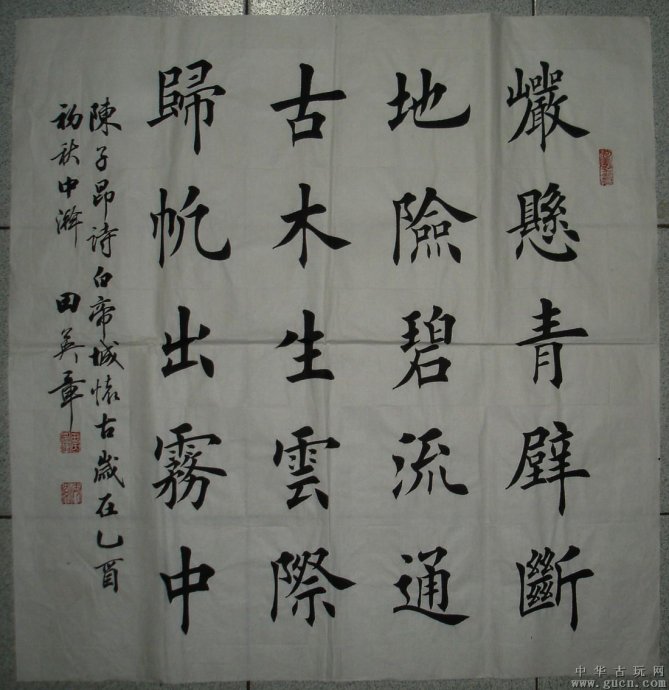 巖懸青壁斷
地險碧流通
古木生雲際
歸帆出霧中
陳子昂詩白帝城懷古歲在乙酉
初秋中澣 田英章
中华古玩网
www.gucn.com